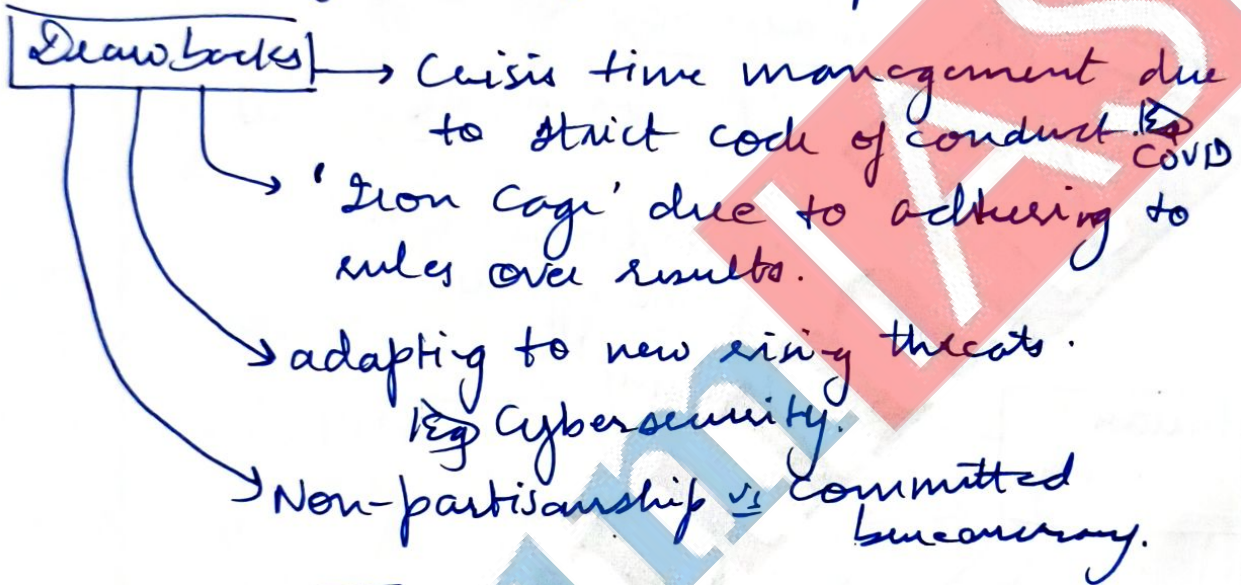 Drawbacks → Crisis time management due
to strict code of conduct. Eg
COVID
'Iron Cage' due to adhering to
rules over results.
adapting to new rising threats.
Eg Cybersecurity.
Non-partisanship vs committed
bureaucracy.